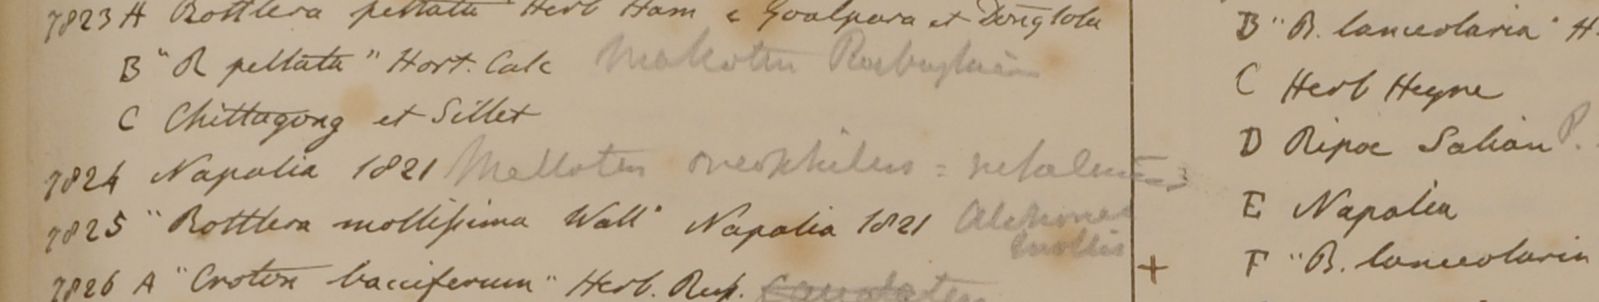 7823 A Rottlera peltata Herb Ham e Goalpara et
B "R peltata" Hort. Calc Roxburghian
C Chittagong et Sillet
7824 Napalia 1821 Mallotus oreophilus = nepalensis
7825 "Rottlera mollissima Wall" Napalia 1821 Alchornea mollis
7826 A "Croton bacciferum" Herb. Rus.
B "B. lanceolaria" H.
C Herb Heyne
D Ripae Salian P.
E Napalia
+ F "B. lanceolaria